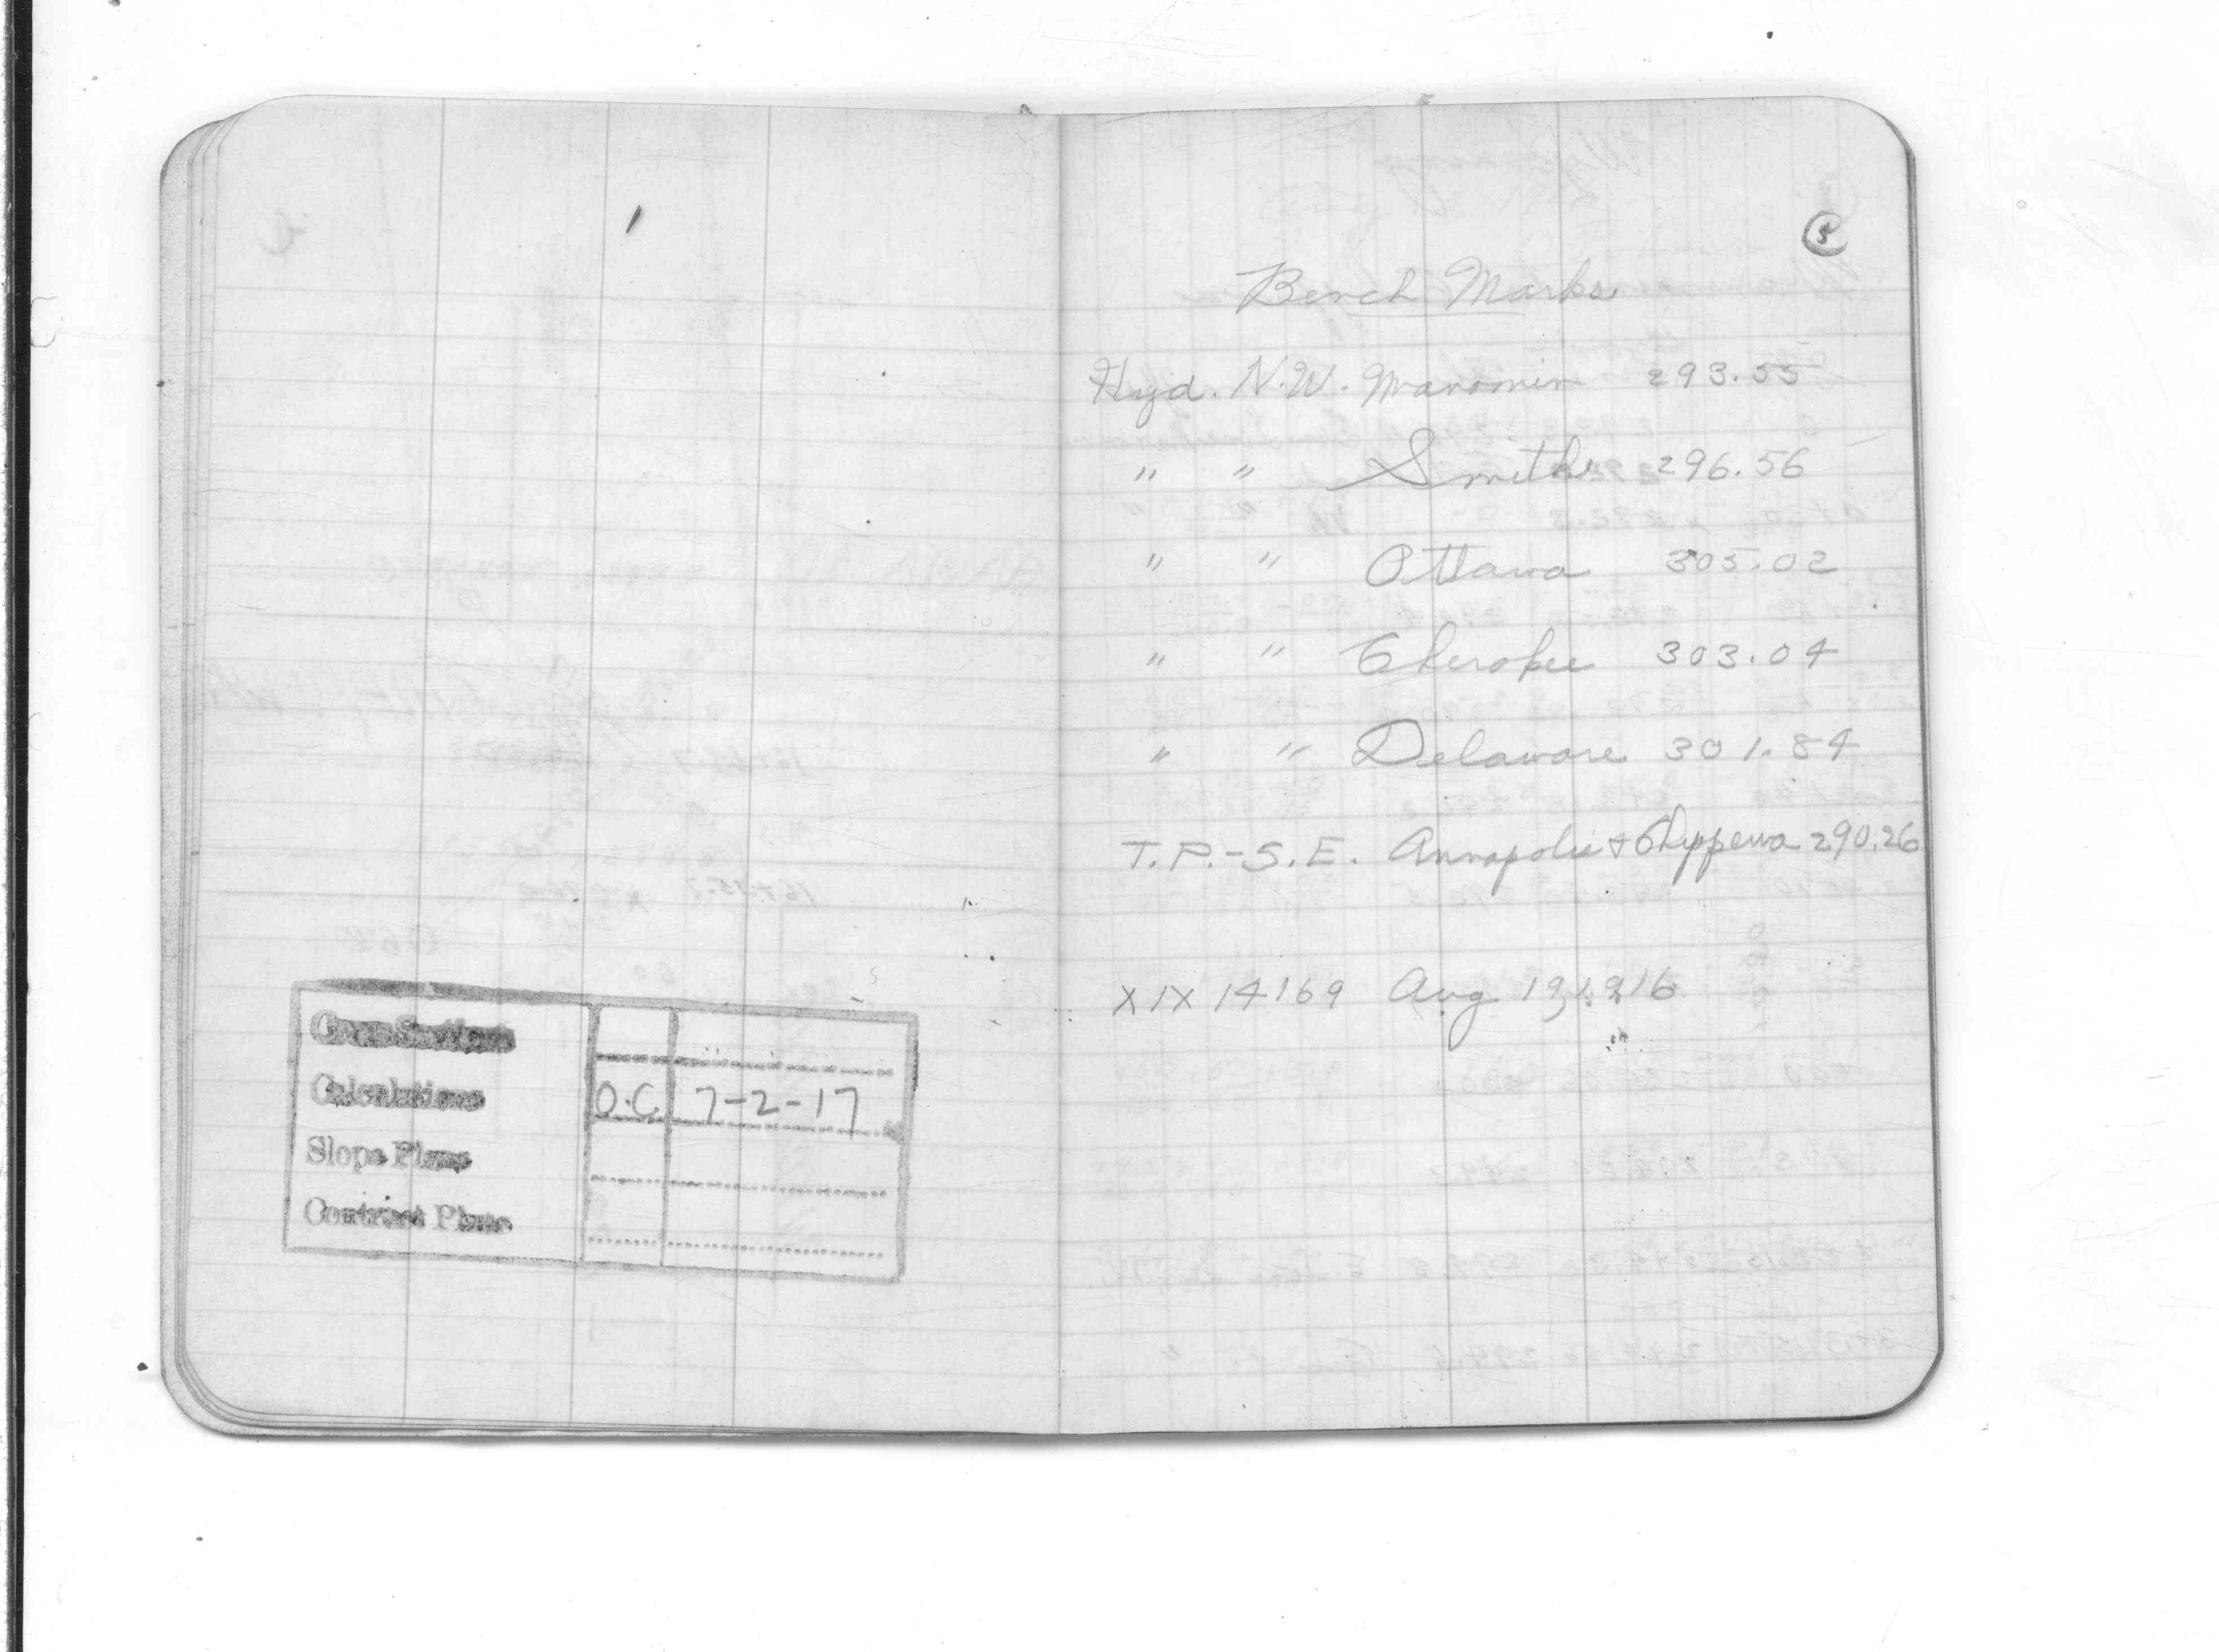 Cross Sections
Calculations O.C. 7-2-17
Slope Plans
Contract Plans
5
Bench Marks
Hyd. N.W. Manomin 293.55
" " Smith 296.56
" " Ottawa 305.02
" " Cherokee 303.04
" " Delaware 301.84
T.P.-S.E. Annapolis + Chippewa 290.26
XIX 14169 Aug 19, 1916